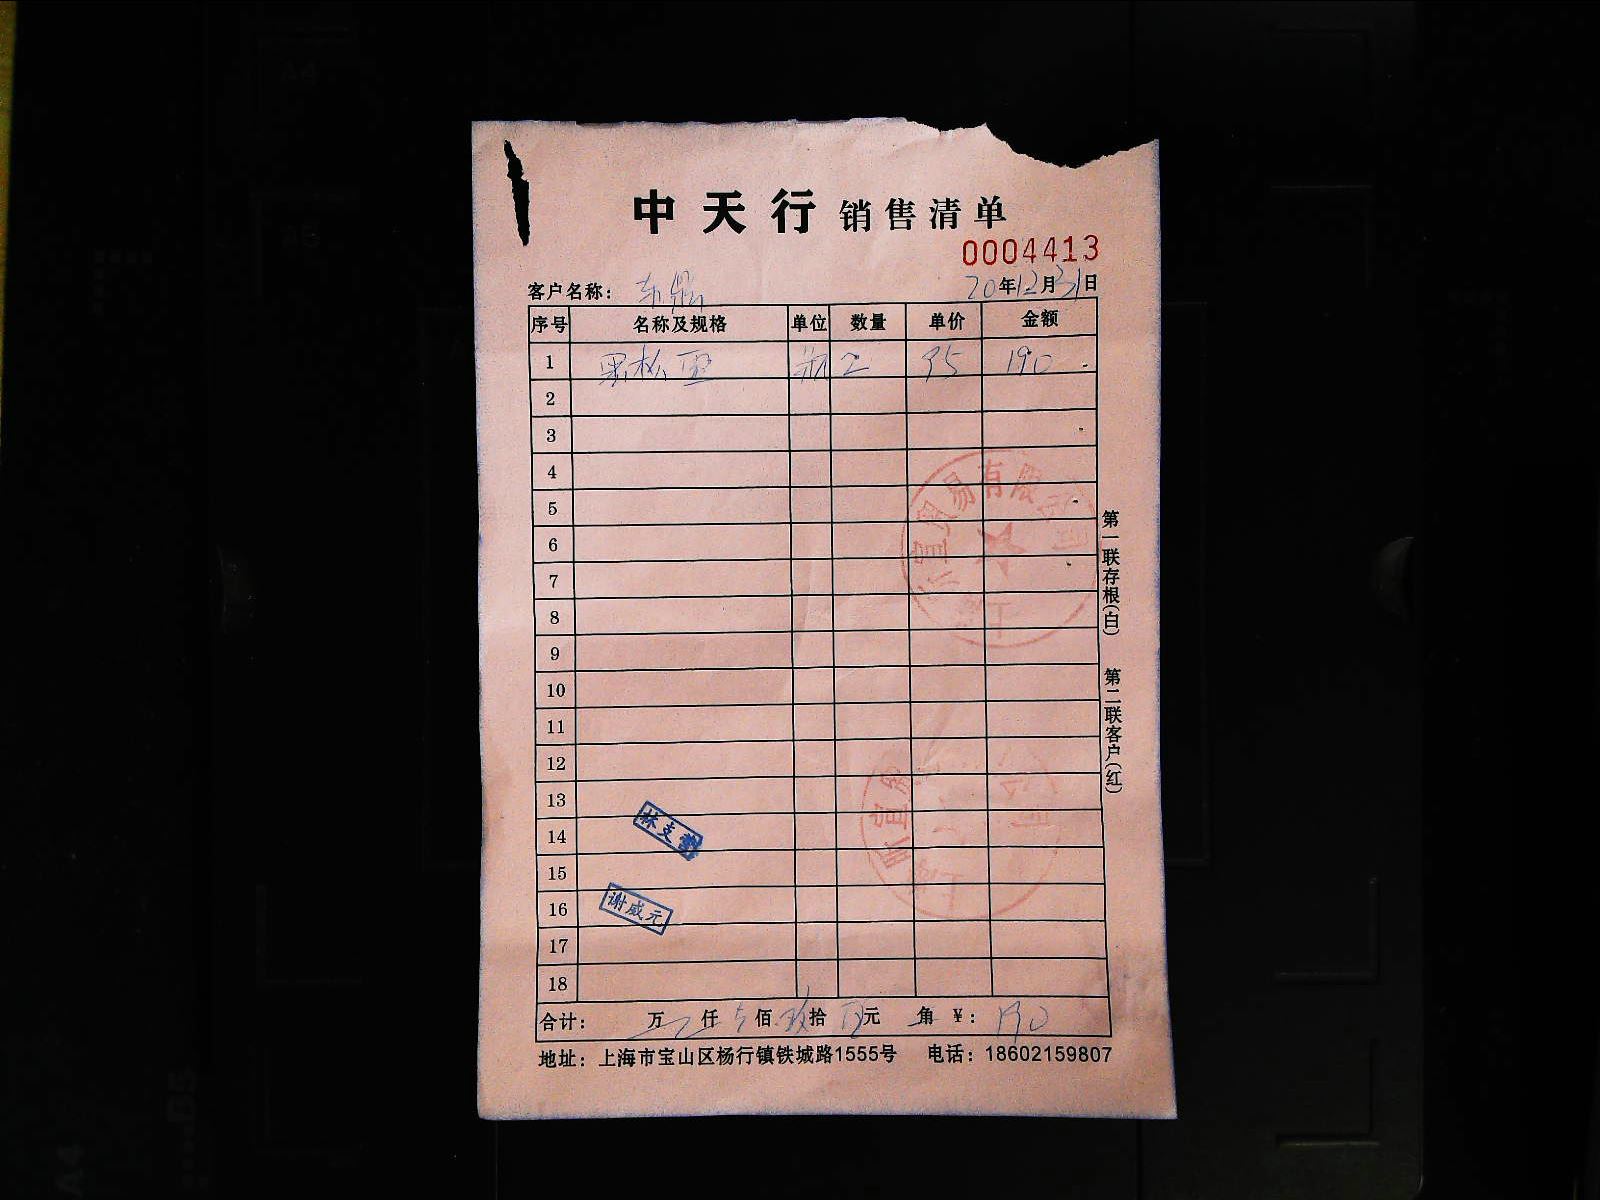 中天行 销售清单
0004413
客户名称： 东鼎 20年12月31日
序号 名称及规格 单位 数量 单价 金额
1 黑松 瓶 2 95 190
2
3
4
5
6
7
8
9
10
11
12
13
14
15
16
17
18
林支
谢咸元
贸易有限公司
合计： 万 仟 佰 玖拾 元 角 ¥： 190
地址：上海市宝山区杨行镇铁城路1555号 电话：18602159807
第一联存根(白) 第二联客户(红)